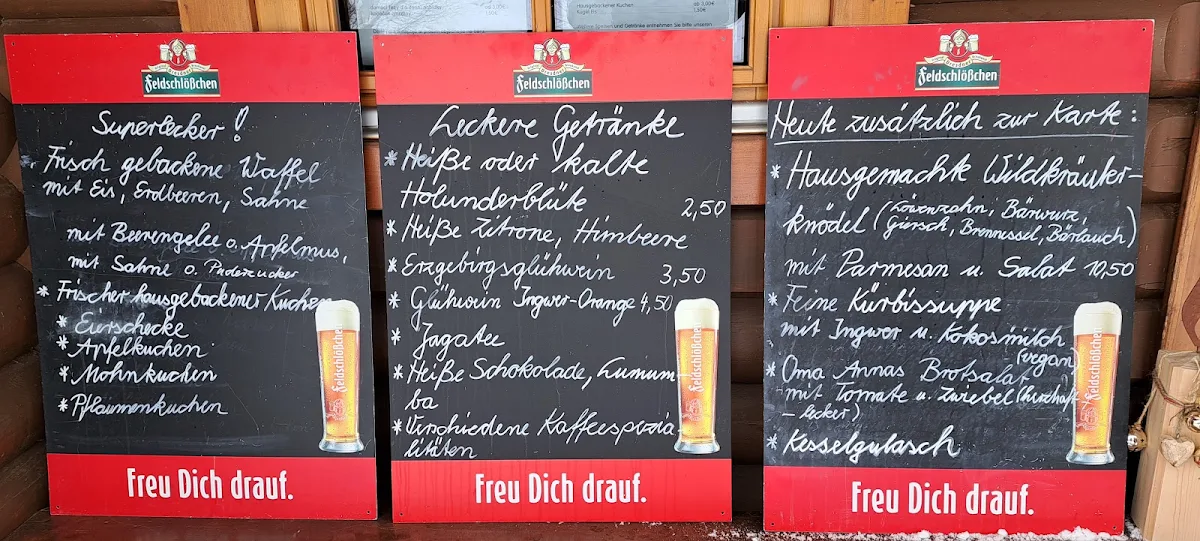 Feldschlößchen
Superlecker!
Frisch gebackene Waffel
mit Eis, Erdbeeren, Sahne
mit Beerengelee o. Apfelmus,
mit Sahne o. Puderzucker
* Frischer hausgebackener Kuchen
* Eierschecke
* Apfelkuchen
* Mohnkuchen
* Pflaumenkuchen
Feldschlößchen
Freu Dich drauf.
Feldschlößchen
Leckere Getränke
* Heiße oder kalte
Holunderblüte 2,50
* Heiße Zitrone, Himbeere
* Erzgebirgsglühwein 3,50
* Glühwein Ingwer-Orange 4,50
* Jagatee
* Heiße Schokolade, Lumum-
ba
* Verschiedene Kaffeespezia-
litäten
Feldschlößchen
Freu Dich drauf.
Feldschlößchen
Heute zusätzlich zur Karte:
* Hausgemachte Wildkräuter-
knödel (Löwenzahn, Bärwurz,
Giersch, Brennessel, Bärlauch)
mit Parmesan u. Salat 10,50
* Feine Kürbissuppe
mit Ingwer u. Kokosmilch
(vegan)
* Oma Annas Brotsalat
mit Tomate u. Zwiebel (herzhaft
- lecker)
* Kesselgulasch
Feldschlößchen
Freu Dich drauf.